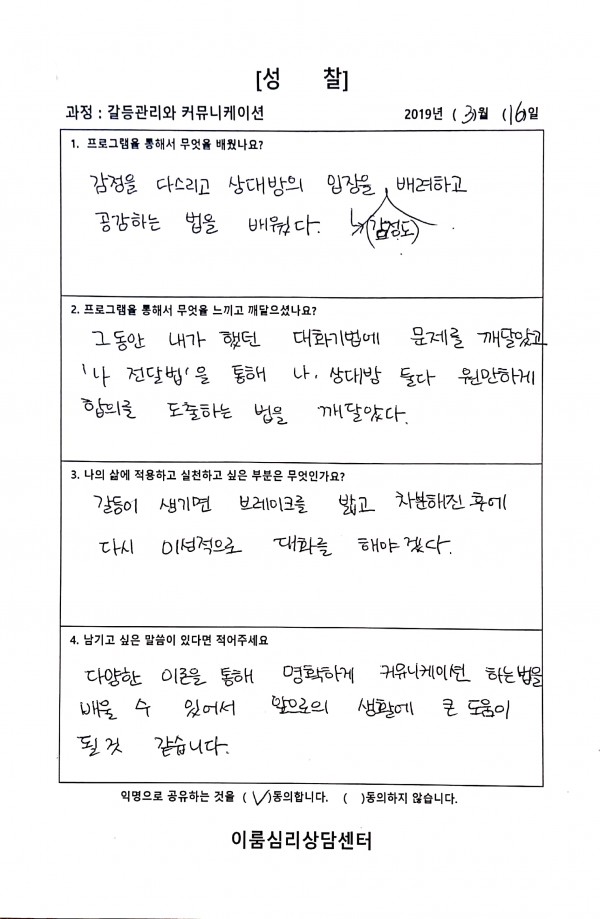 [성 찰]
과정 : 갈등관리와 커뮤니케이션 2019년 ( 3)월 (16)일
1. 프로그램을 통해서 무엇을 배웠나요?
감정을 다스리고 상대방의 입장을 배려하고
공감하는 법을 배웠다. (감정도)
2. 프로그램을 통해서 무엇을 느끼고 깨달으셨나요?
그동안 내가 했던 대화기법에 문제를 깨달았고
'나 전달법'을 통해 나, 상대방 둘다 원만하게
합의를 도출하는 법을 깨달았다.
3. 나의 삶에 적용하고 실천하고 싶은 부분은 무엇인가요?
갈등이 생기면 브레이크를 밟고 차분해진 후에
다시 이성적으로 대화를 해야겠다.
4. 남기고 싶은 말씀이 있다면 적어주세요
다양한 이론을 통해 명확하게 커뮤니케이션 하는법을
배울 수 있어서 앞으로의 생활에 큰 도움이
될것 같습니다.
익명으로 공유하는 것을 (✓)동의합니다. ( )동의하지 않습니다.
이룸심리상담센터